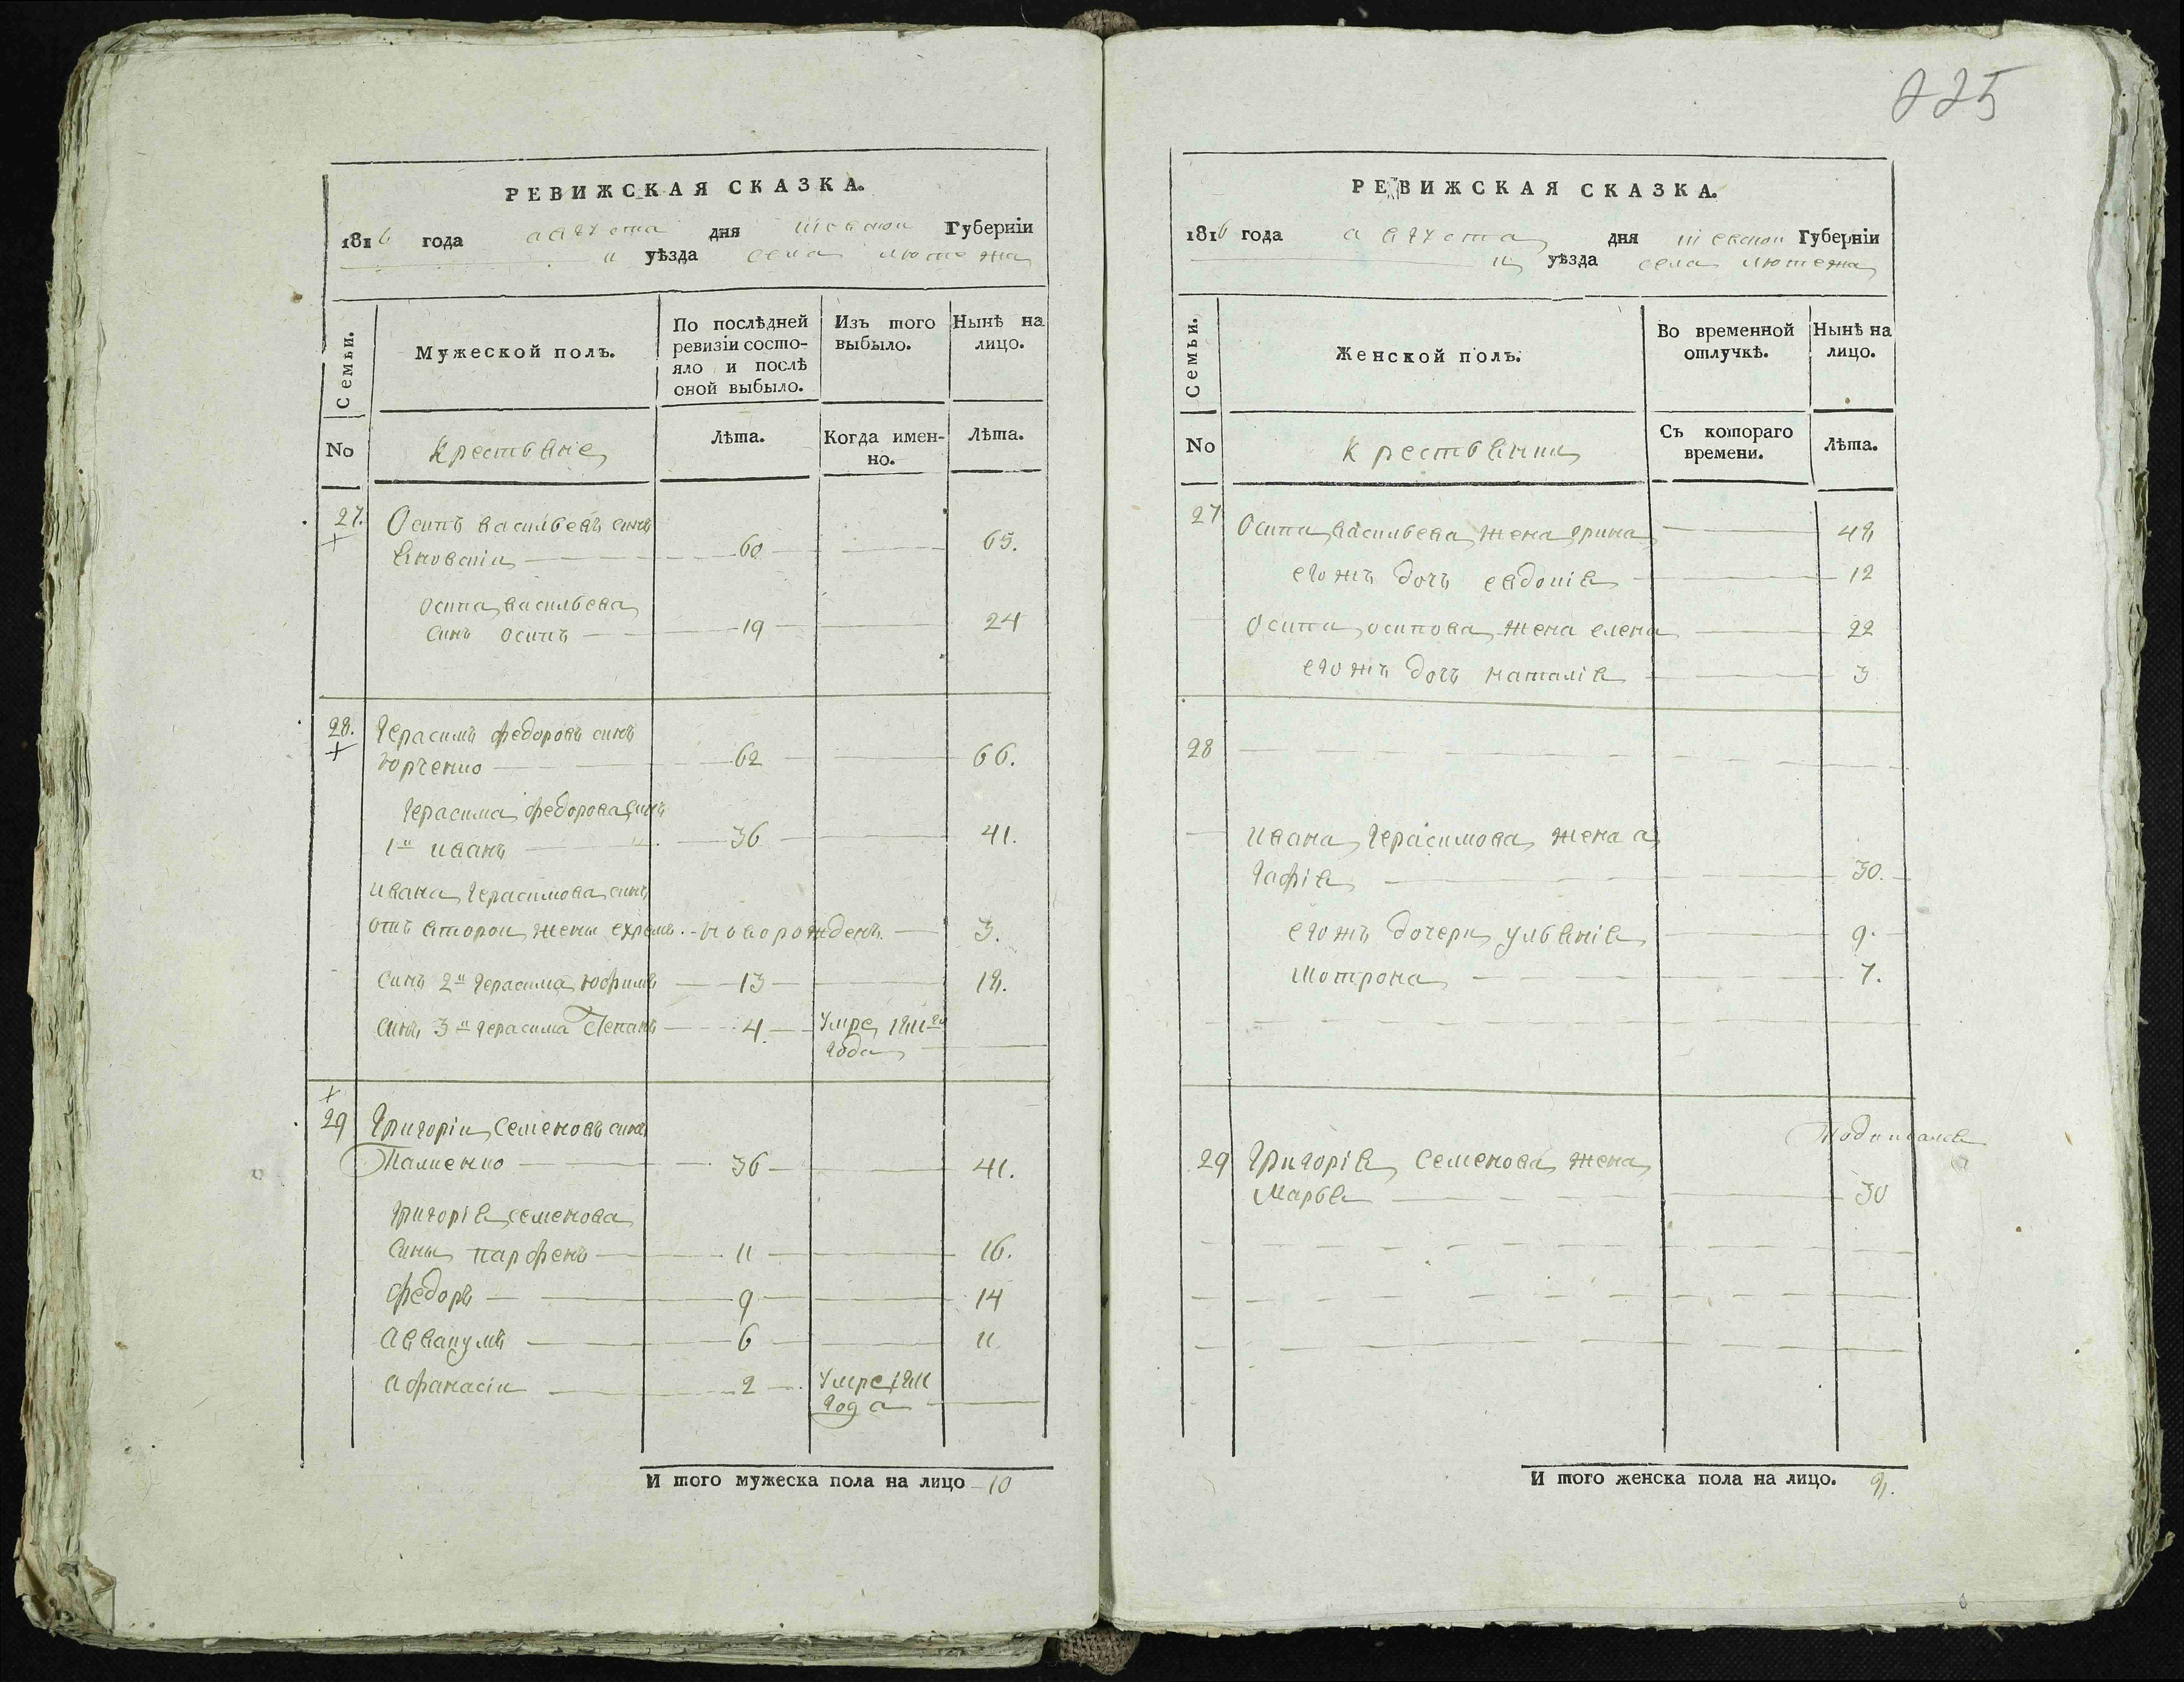 225
РЕВИЖСКАЯ СКАЗКА.
1816 года августа дня Киевской Губерніи
уѣзда села Лютежа
Семьи.
Мужеской полъ.
По послѣдней ревизіи состояло и послѣ оной выбыло.
Изъ того выбыло.
Нынѣ на лицо.
No
Крестьяне
Лѣта.
Когда именно.
Лѣта.
27. Осипъ Васильевъ синъ
60 65.
Осипа Васильева
синъ Осипъ 19 24
28. Герасимъ Федоровъ синъ
Юрченко 62 66.
Герасима Федорова синъ
1й Иванъ 36 41.
Ивана Герасимова синъ
отъ второй жены Ехремъ новорожденъ. 3.
Синъ 2й Герасима Юфимъ 13 18.
Синъ 3й Герасима Степанъ 4. Умре 1811го
года
29 Григорій Семеновъ синъ
Палиенко 36 41.
Григорія Семенова
Сины Парфенъ 11 16.
Федоръ 9 14
Аввакумъ 6 11.
Афанасій 2 Умре 1811
года
И того мужеска пола на лицо 10
РЕВИЖСКАЯ СКАЗКА.
1816 года августа дня Киевской Губерніи
уѣзда села Лютежа
Семьи.
Женской полъ.
Во временной отлучкѣ.
Нынѣ на лицо.
No
Крестьянки
Съ котораго времени.
Лѣта.
27 Осипа Васильева жена Ирина 48
егожъ дочь Евдокія 12
Осипа Осипова жена Елена 22
егожъ дочь Наталія 3
28
Ивана Герасимова жена А
гафія 30.
егожъ дочери Ульянія 9.
Мотрона 7.
29 Григорія Семенова жена
Марья 30
И того женска пола на лицо. 8.